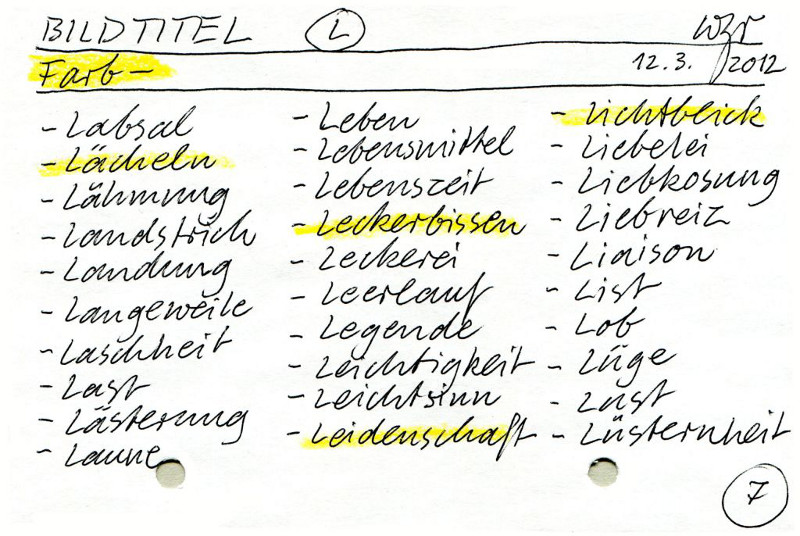 BILDTITEL L wzr
Farb- 12.3. 2012
- Labsal
- Lächeln
- Lähmung
- Landstrich
- Landung
- Langeweile
- Laschheit
- Last
- Lästerung
- Laune
- Leben
- Lebensmittel
- Lebenszeit
- Leckerbissen
- Leckerei
- Leerlauf
- Legende
- Leichtigkeit
- Leichtsinn
- Leidenschaft
- Lichtblick
- Liebelei
- Liebkosung
- Liebreiz
- Liaison
- List
- Lob
- Lüge
- Lust
- Lüsternheit
7